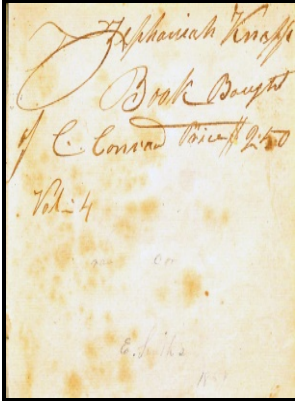 Zephaniah Knapp
Book Bought
of C. Conrad Price $2.50
Vol-4